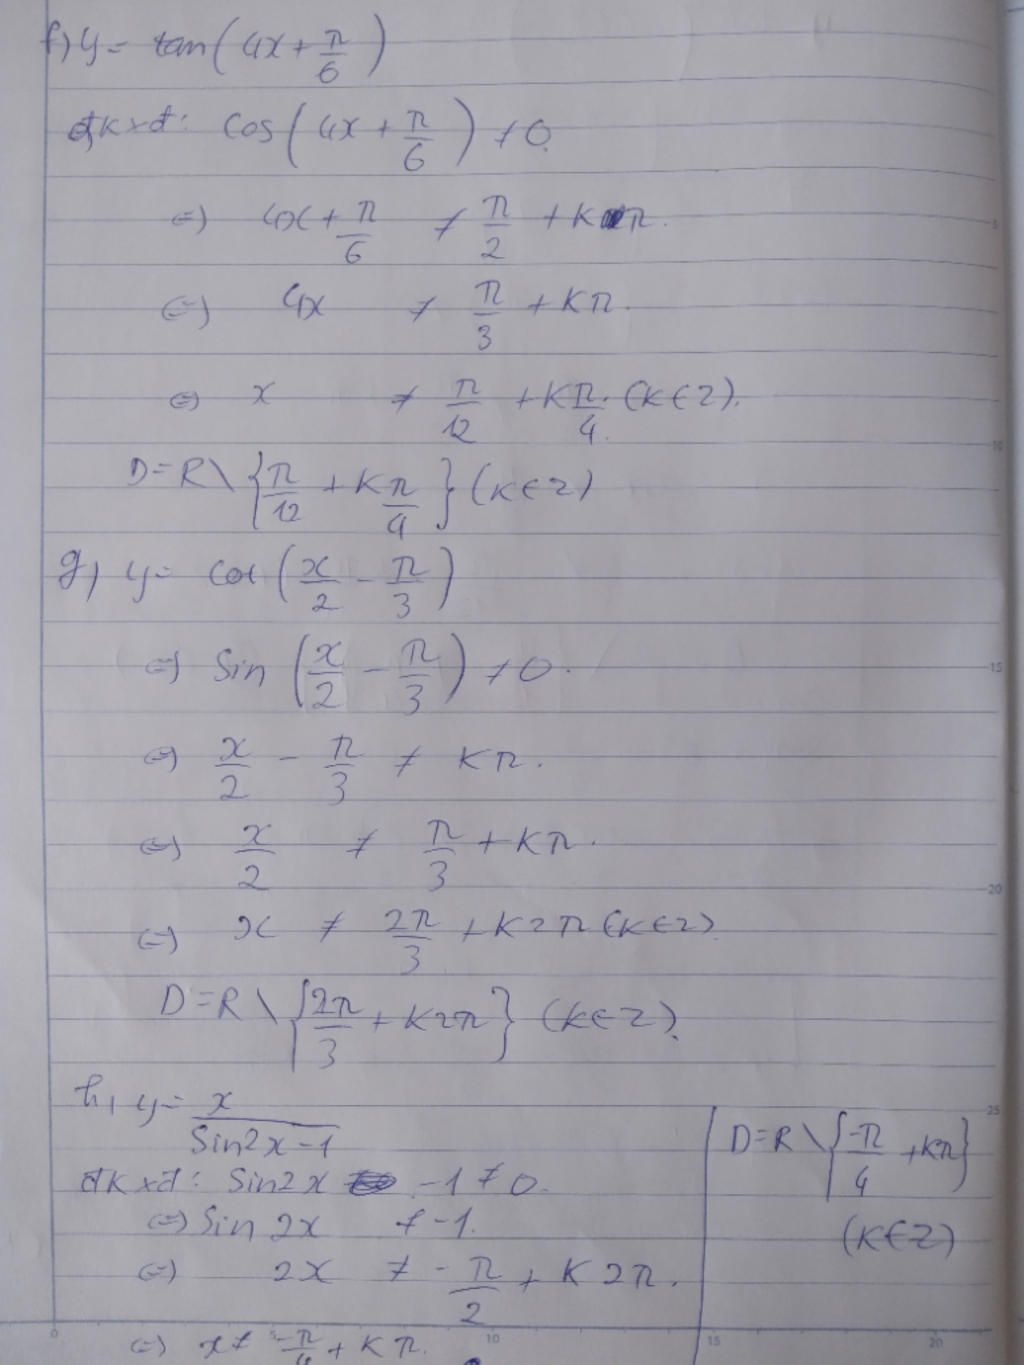 f) y = tan(4x + π/6)
đkxđ: cos(4x + π/6) ≠ 0.
⇔) 4x + π/6 ≠ π/2 + kπ.
⇔) 4x ≠ π/3 + kπ.
⇔) x ≠ π/12 + kπ/4. (k∈Z).
D=R\{π/12 + kπ/4} (k∈Z)
g) y = cot(x/2 - π/3)
⇔) Sin(x/2 - π/3) ≠ 0.
⇔) x/2 - π/3 ≠ kπ.
⇔) x/2 ≠ π/3 + kπ.
⇔) x ≠ 2π/3 + k2π (k∈Z)
D=R\{2π/3 + k2π} (k∈Z).
h, y = x/(Sin2x-1)
đkxđ: Sin2x -1 ≠ 0.
⇔) Sin 2x ≠ -1.
⇔) 2x ≠ -π/2 + k2π.
⇔) x ≠ -π/4 + kπ.
D=R\{-π/4 + kπ}
(k∈Z)
5
10
15
20
25
0
5
10
15
20